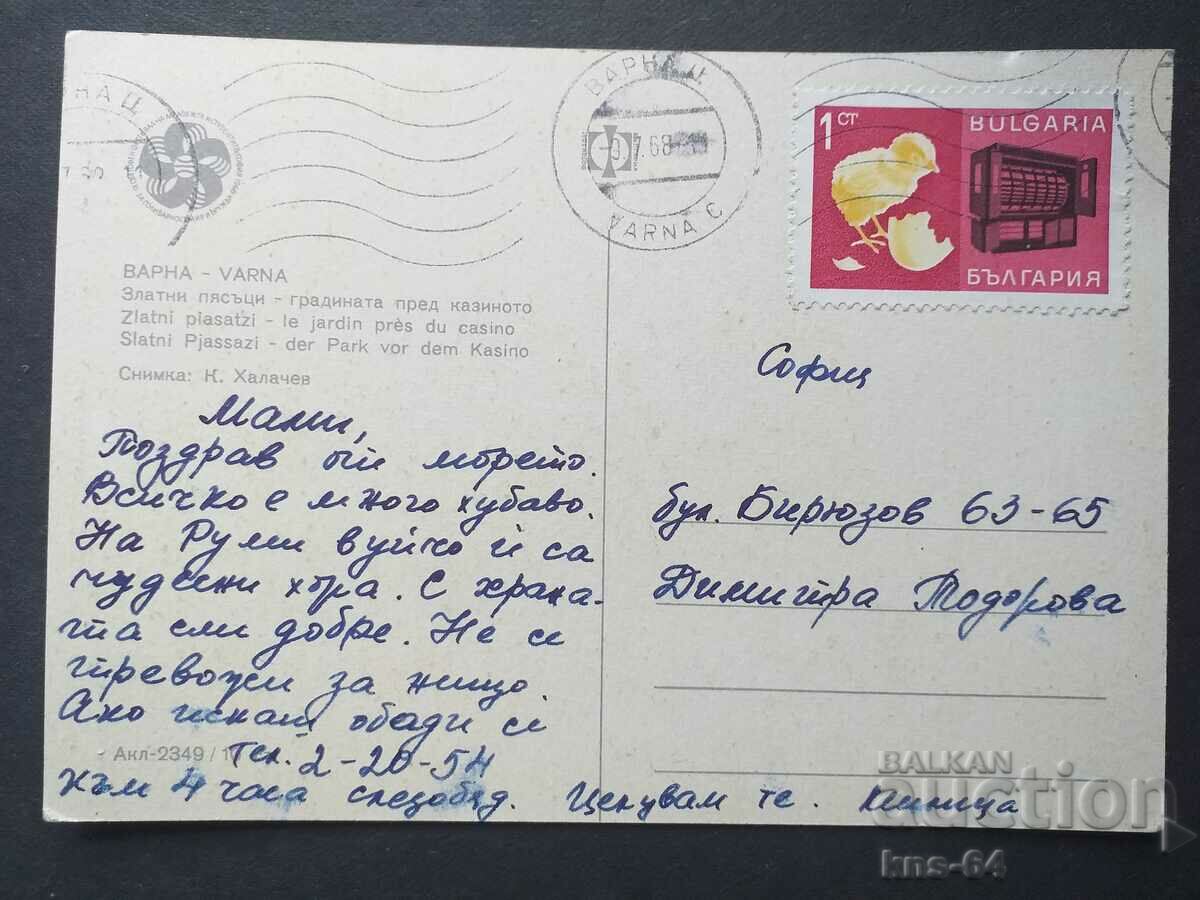 ВАРНА Ц
VARNA C
7.68
1 СТ
BULGARIA
БЪЛГАРИЯ
ВАРНА - VARNA
Златни пясъци - градината пред казиното
Zlatni piasatzi - le jardin près du casino
Slatni Pjassazi - der Park vor dem Kasino
Снимка: К. Халачев
Мами,
Поздрав от морето.
Всичко е много хубаво.
На Руми вуйчо ѝ са
чудесни хора. С храна-
та сми добре. Не се
тревожи за нищо.
Ако искаш обади се
Акл-2349 / 1
тел. 2-20-54
към 4 часа следобяд. Целувам те.
София
бул. Бирюзов 63-65
Димитра Тодорова
BALKAN
auction
kns-64